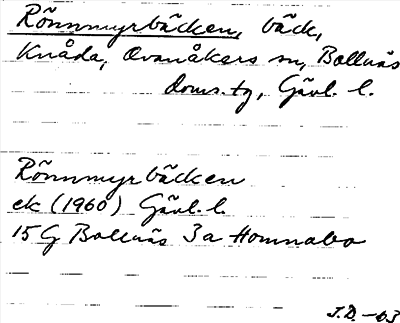 Rönnmyrbäcken, bäck,
Knåda, Ovanåkers sn, Bollnäs
doms.tg, Gävl. l.
Rönnmyrbäcken
ek (1960) Gävl. l.
15 G Bollnäs 3a Homnabo
J.D. -63